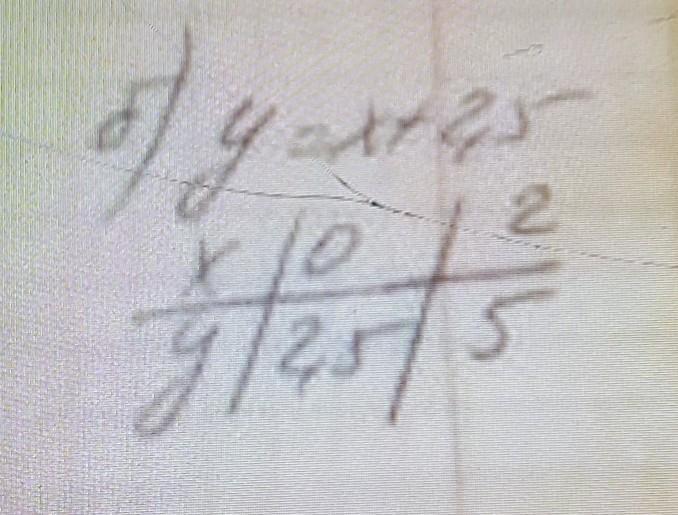 б) y = x + 2,5
x | 0 | 2
y | 2,5 | 5